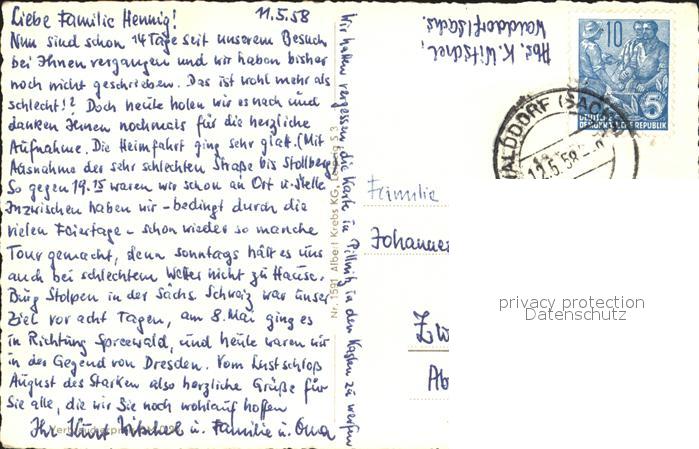 Liebe Familie Hennig! 11.5.58
Nun sind schon 14 Tage seit unserem Besuch
bei Ihnen vergangen und wir haben bisher
noch nicht geschrieben. Das ist wohl mehr als
schlecht!? Doch heute holen wir es nach und
danken Ihnen nochmals für die herzliche
Aufnahme. Die Heimfahrt ging sehr glatt. (Mit
Ausnahme der sehr schlechten Straße bis Stollberg)
So gegen 19.15 waren wir schon an Ort u. Stelle.
Inzwischen haben wir - bedingt durch die
vielen Feiertage - schon wieder so manche
Tour gemacht, denn sonntags hält es uns
auch bei schlechtem Wetter nicht zu Hause.
Burg Stolpen in der Sächs. Schweiz war unser
Ziel vor acht Tagen, am 8. Mai ging es
in Richtung Spreewald, und heute waren wir
in der Gegend von Dresden. Vom Lustschloß
August des Starken also herzliche Grüße für
Sie alle, die wir Sie noch wohlauf hoffen
Ihr Kurt Witschel u. Familie u. Oma
Wir hatten vergessen die Karte in Pillnitz in den Kasten zu werfen
Nr. 1591 Albert Krebs KG,
Abs. K. Witschel,
Walddorf/Sachs.
10
DEUTSCHE
DEMOKRATISCHE REPUBLIK
5
WALDDORF (SACHS)
12.5.58
Familie
Johannes
Zw
Ab
privacy protection
Datenschutz